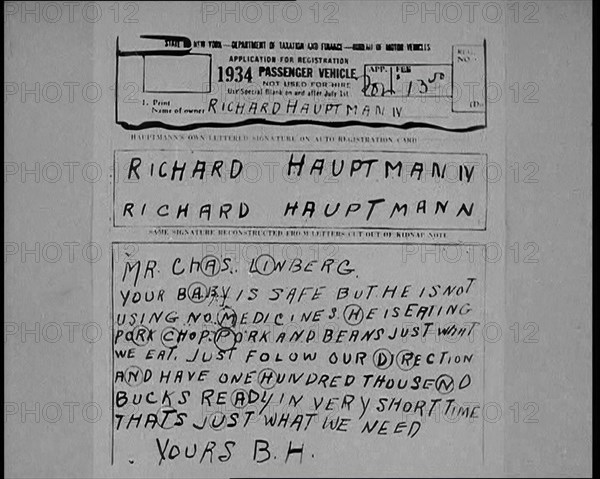 STATE OF NEW YORK—DEPARTMENT OF TAXATION AND FINANCE—BUREAU OF MOTOR VEHICLES
APPLICATION FOR REGISTRATION
1934 PASSENGER VEHICLE
NOT USED FOR HIRE
Use Special Blank on and after July 1st
APP. FEB
13 50
REG.
NO.
1. Print
Name of owner RICHARD HAUPTMAN IV
HAUPTMANN'S OWN LETTERED SIGNATURE ON AUTO REGISTRATION CARD
RICHARD HAUPTMAN IV
RICHARD HAUPTMANN
SAME SIGNATURE RECONSTRUCTED FROM LETTERS CUT OUT OF KIDNAP NOTE
MR. CHAS. LINBERG.
YOUR BABY IS SAFE BUT HE IS NOT
USING NO MEDICINES. HE IS EATING
PORK CHOP. PORK AND BEANS JUST WHAT
WE EAT. JUST FOLOW OUR DIRECTION
AND HAVE ONE HUNDRED THOUSEND
BUCKS READY IN VERY SHORT TIME
THATS JUST WHAT WE NEED
YOURS B.H.
PHOTO 12